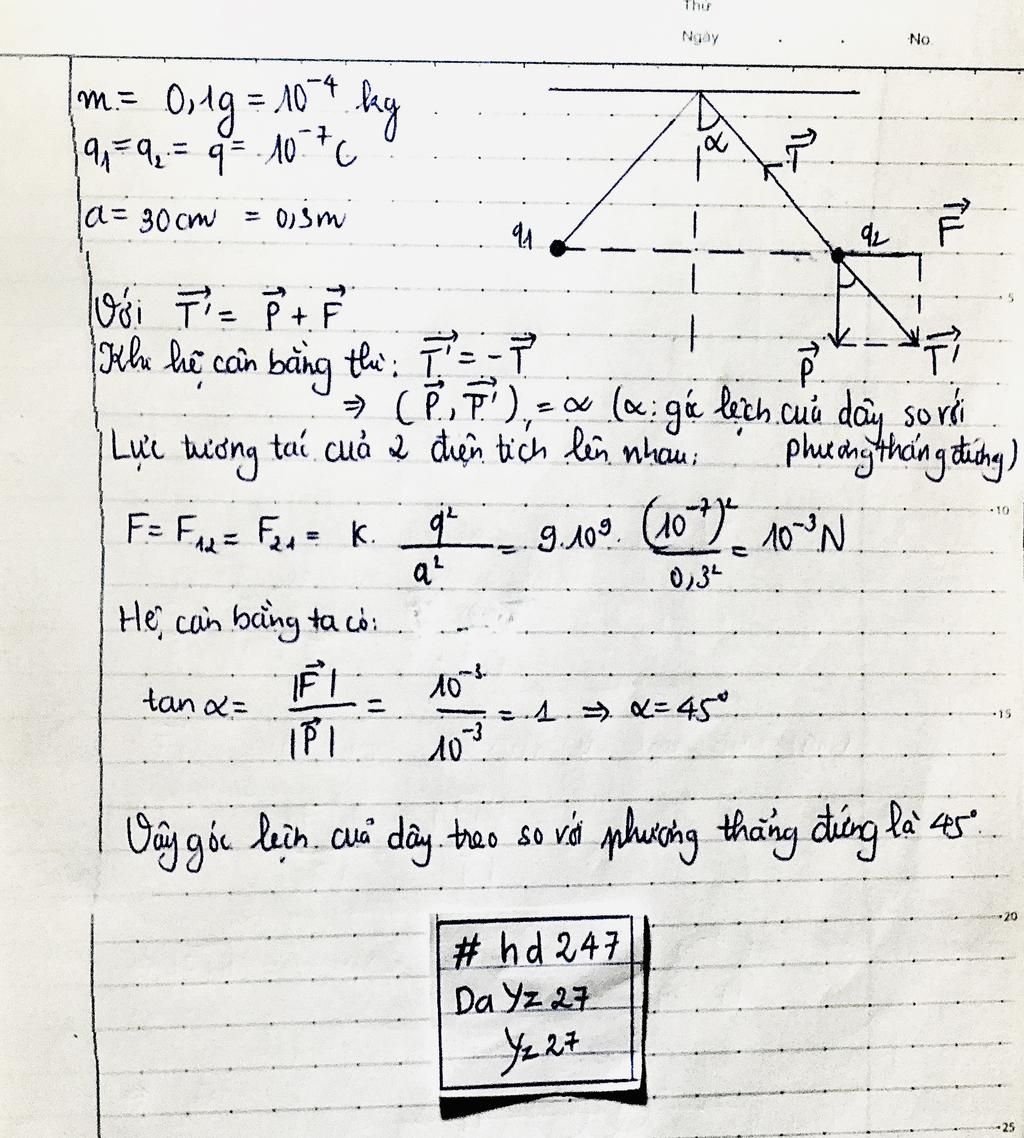 Thứ
Ngày . . No.
m = 0,1g = 10⁻⁴ kg
q₁ = q₂ = q = 10⁻⁷ C
a = 30cm = 0,3m
α
T⃗
q₁
q₂
F⃗
P⃗
T⃗'
Với T⃗' = P⃗ + F⃗
Khi hệ cân bằng thì: T⃗' = -T⃗
⇒ (P⃗, T⃗') = α (α: góc lệch của dây so với
phương thẳng đứng)
Lực tương tác của 2 điện tích lên nhau:
F = F₁₂ = F₂₁ = k. q²/a² = 9.10⁹. (10⁻⁷)²/0,3² = 10⁻³ N
Hệ cân bằng ta có:
tan α = |F⃗|/|P⃗| = 10⁻³/10⁻³ = 1 ⇒ α = 45°
Vậy góc lệch của dây treo so với phương thẳng đứng là 45°.
# hd 247
Da Yz 27
Yz 27
5
10
15
20
25